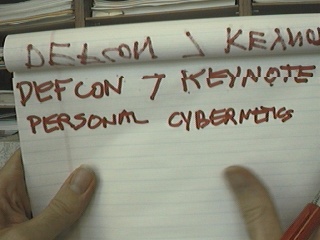 DEFCON
DEFCON 7 KEYNOTE
PERSONAL CYBERNETICS